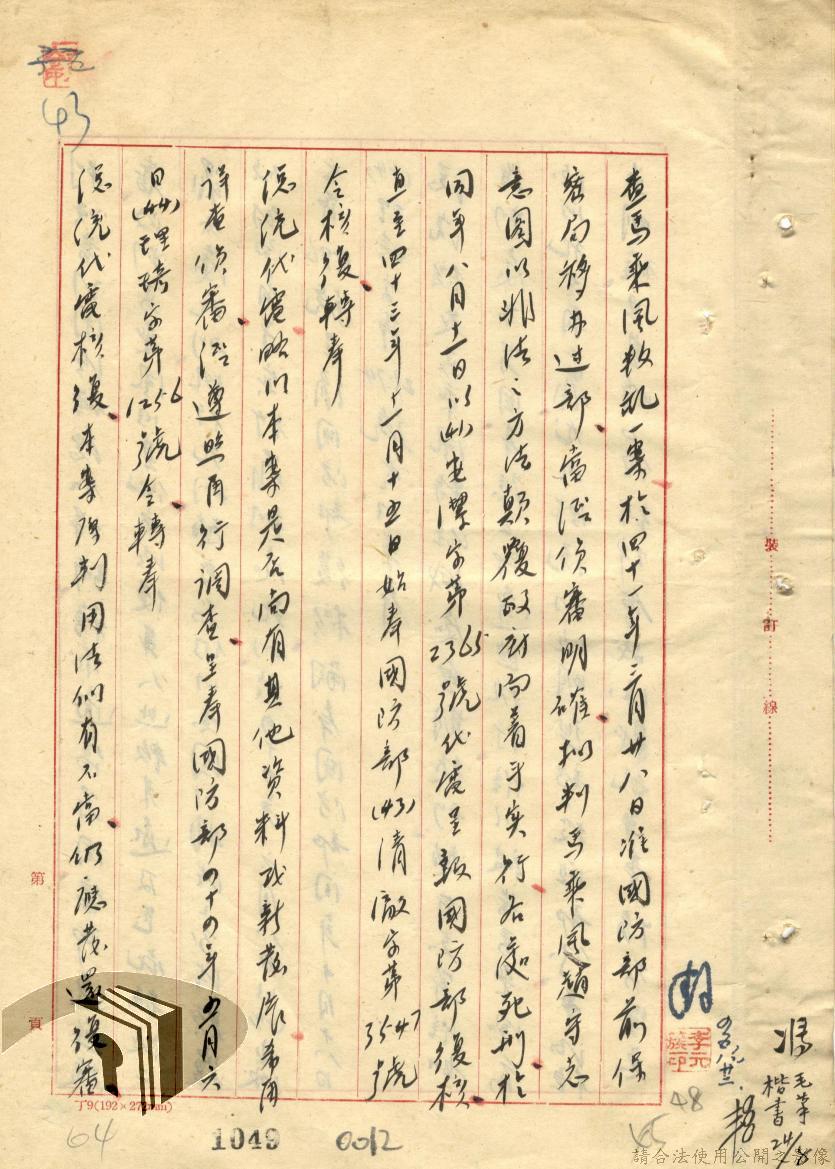 查馬乘風叛亂一案於四十一年二月廿八日准國防部前保
密局移办过部、當经偵審明確、拟判馬乘風趙守志
意圖以非法之方法顛覆政府而着手实行各處死刑、於
同年八月十一日以(41)安潔字第2365號代電呈報國防部復核、
直至四十三年十一月十五日始奉國防部(43)清澈字第3547號
令核復、轉奉
總統代電略以本案是否尚有其他資料或新發展希再
詳查偵審、经遵照再行調查、呈奉國防部四十四年五月六
日(44)理琦字第1256號令、轉奉
總統代電核復、本案原判用法仍有不當、仍應發還復審
裝訂線
第 頁
丁9(192×272mm)
43
48
45
64
1049
0012
毛筆
楷書
請合法使用公開之影像